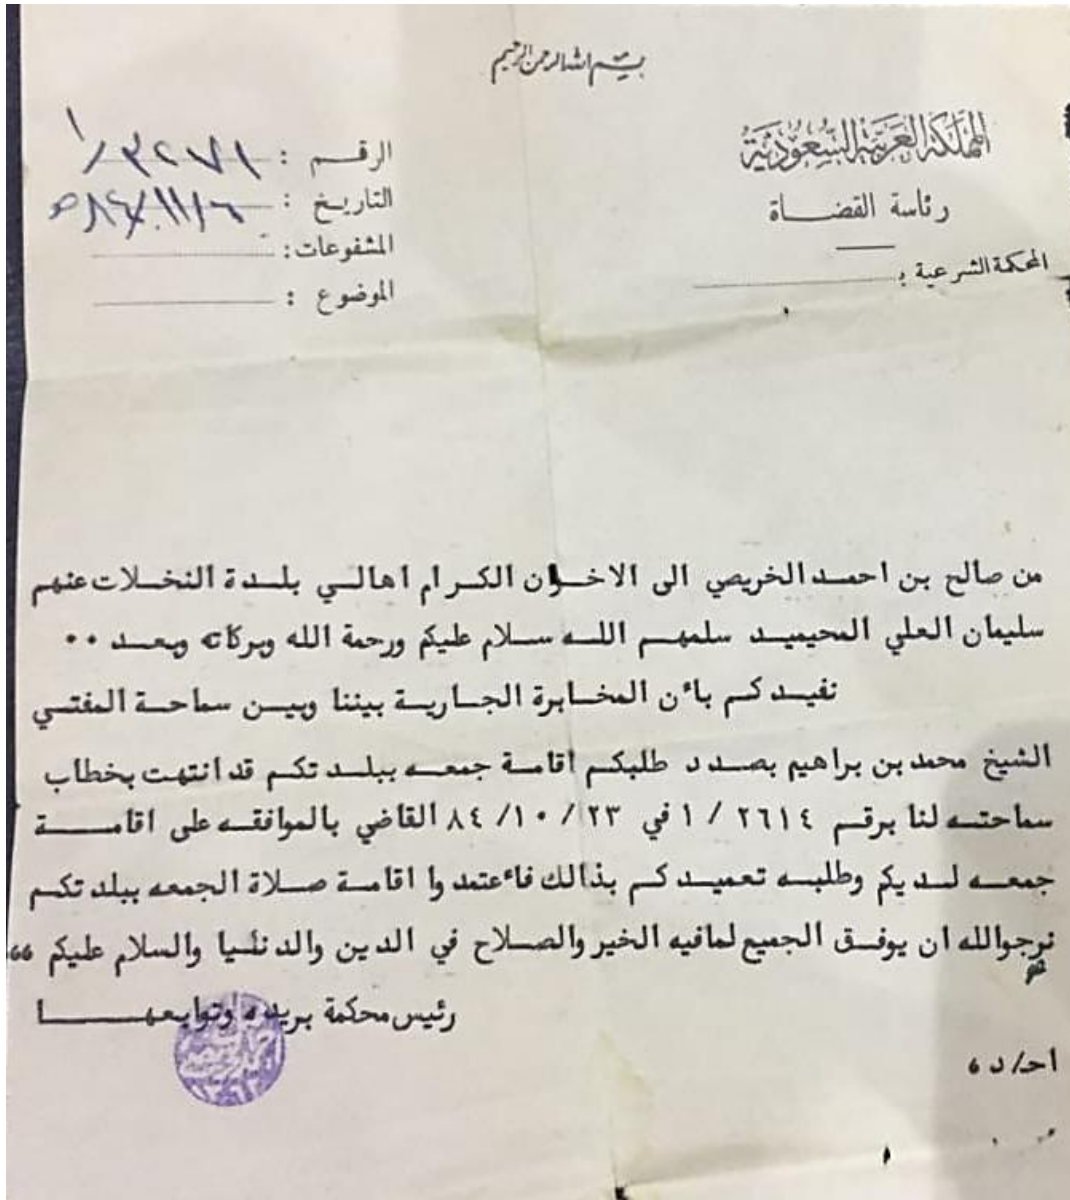 بسم الله الرحمن الرحيم
المملكة العربية السعودية
رئاسة القضاة
المحكمة الشرعية بـ
الرقم : ٣٢٧١/١
التاريخ : ٦/١١/٨٤هـ
المشفوعات :
الموضوع :
من صالح بن احمد الخريصي الى الاخوان الكرام اهالي بلدة النخلات عنهم
سليمان العلي المحيميد سلمهم الله سلام عليكم ورحمة الله وبركاته وبعد ..
نفيدكم بأن المخابرة الجارية بيننا وبين سماحة المفتي
الشيخ محمد بن براهيم بصدد طلبكم اقامة جمعه ببلدتكم قد انتهت بخطاب
سماحته لنا برقم ٢٦١٤ / ١ في ٢٣ /١٠ /٨٤ القاضي بالموافقه على اقامة
جمعه لديكم وطلبه تعميدكم بذالك فأعتمدوا اقامة صلاة الجمعه ببلدتكم
نرجوالله ان يوفق الجميع لمافيه الخير والصلاح في الدين والدنيا والسلام عليكم ،،
رئيس محكمة بريده وتوابعها
احـ/د ،